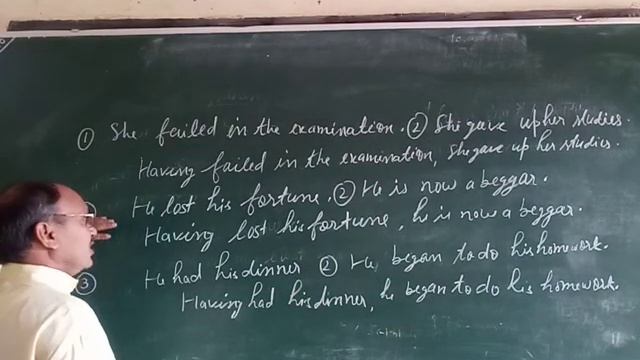 ① She failed in the examination. ② She gave up her studies.
Having failed in the examination, she gave up her studies.
He lost his fortune. ② He is now a beggar.
Having lost his fortune, he is now a beggar.
③ He had his dinner ② He began to do his homework.
Having had his dinner, he began to do his homework.